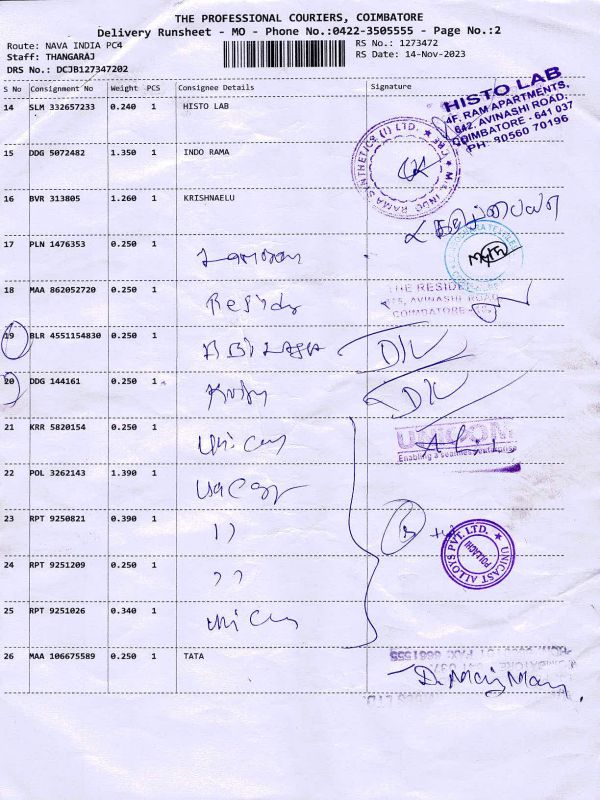 THE PROFESSIONAL COURIERS, COIMBATORE
Delivery Runsheet - MO - Phone No.:0422-3505555 - Page No.:2
Route: NAVA INDIA PC4
Staff: THANGARAJ
DRS No.: DCJB127347202
RS No.: 1273472
RS Date: 14-Nov-2023
S No Consignment No Weight PCS Consignee Details Signature
14 SLM 332657233 0.240 1 HISTO LAB
HISTO LAB
4F, RAM APARTMENTS,
642, AVINASHI ROAD,
COIMBATORE - 641 037
PH: 90560 70196
15 DDG 5072482 1.350 1 INDO RAMA
M/s. INDO RAMA SYNTHETICS (I) LTD. CBE
16 BVR 313805 1.260 1 KRISHNAELU
17 PLN 1476353 0.250 1
18 MAA 862052720 0.250 1
THE RESIDE
AVINASHI ROAD
COIMBATORE
19 BLR 4551154830 0.250 1
DL
20 DDG 144161 0.250 1
DL
21 KRR 5820154 0.250 1 Unicas
UNICON
Enabling a seamless enterprise
22 POL 3262143 1.390 1
23 RPT 9250821 0.390 1 ))
24 RPT 9251209 0.250 1 ))
UNICAST ALLOYS PVT. LTD.
POLLACHI
25 RPT 9251026 0.340 1 Unicas
26 MAA 106675589 0.250 1 TATA